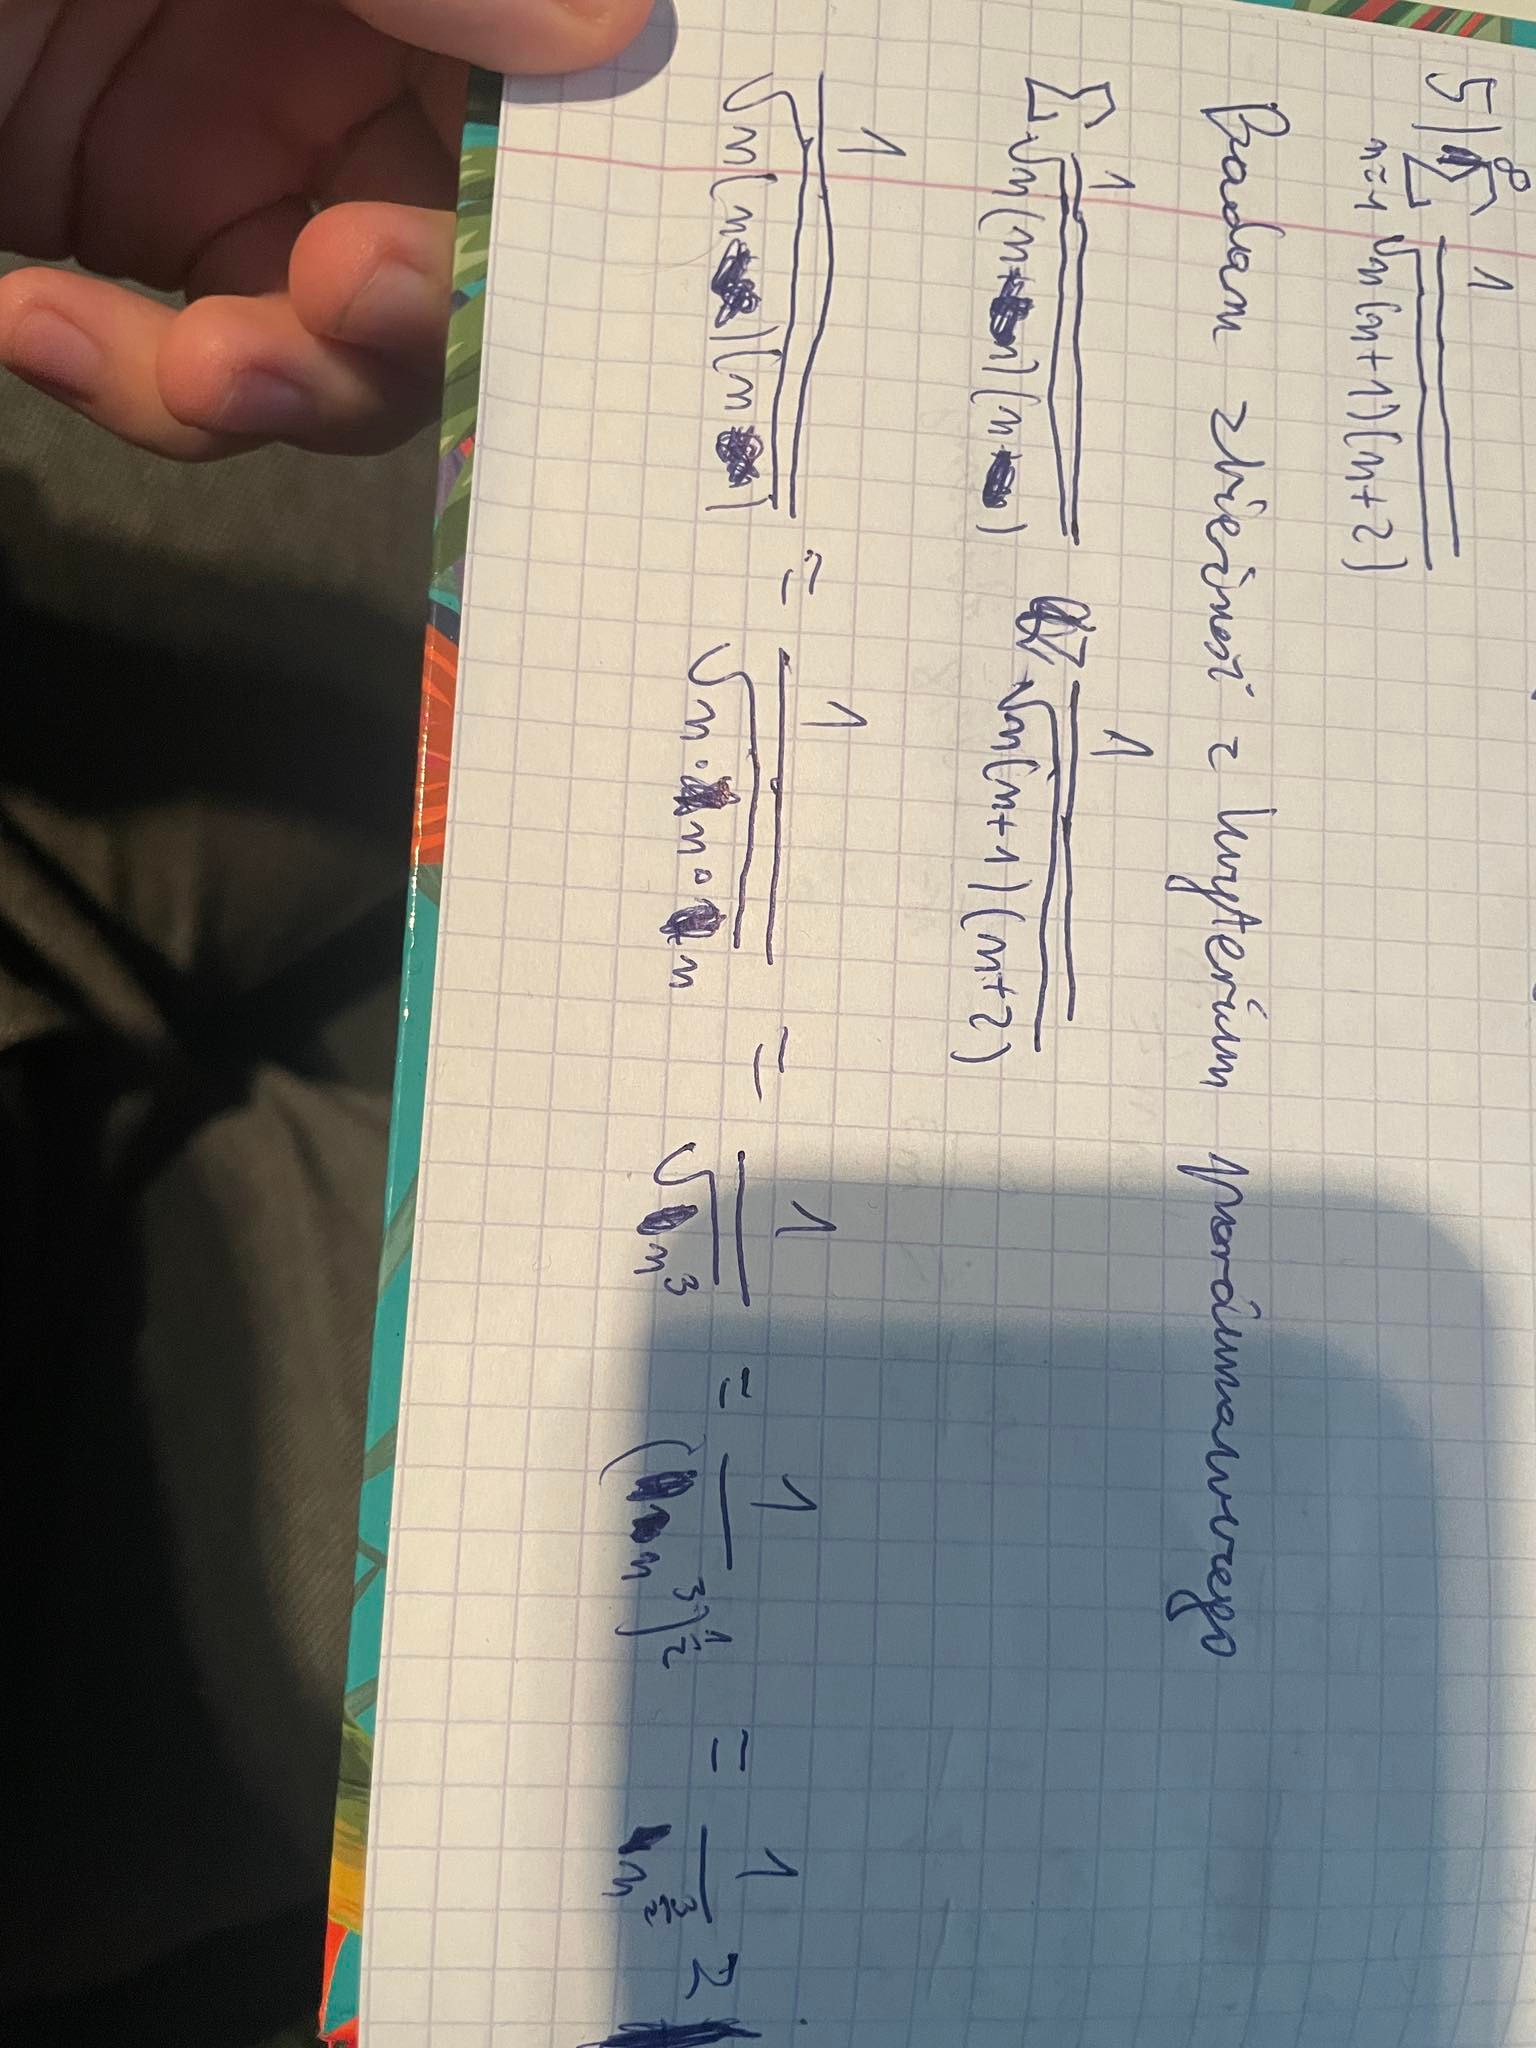 5| ∞ Σ n=1 1/√n(n+1)(n+2)
Badam zbieżność z kryterium porównawczego
Σ 1/√n(n)(n) ⩾ 1/√n(n+1)(n+2)
1/√n(n)(n) = 1/√n·n·n = 1/√n³ = 1/(n³)^1/2 = 1/n^3/2